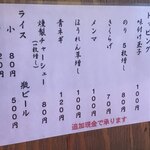 トッピング
味付け玉子 100円
のり 5枚増し 100円
きくらげ 70円
メンマ 80円
ほうれん草増し 100円
青ネギ 120円
燻製チャーシュー
(1枚増し) 80円
ライス 瓶ビール
小 200円 500円
追加現金で承ります